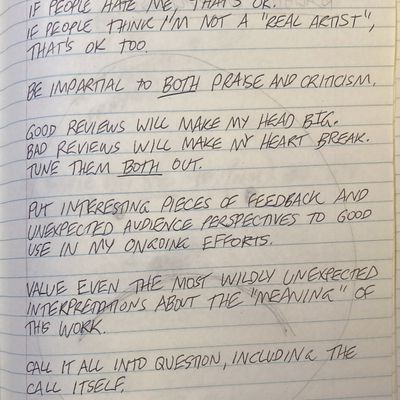 IF PEOPLE HATE ME, THAT'S OK.
IF PEOPLE THINK I'M NOT A "REAL ARTIST",
THAT'S OK TOO.
BE IMPARTIAL TO BOTH PRAISE AND CRITICISM.
GOOD REVIEWS WILL MAKE MY HEAD BIG.
BAD REVIEWS WILL MAKE MY HEART BREAK.
TUNE THEM BOTH OUT.
PUT INTERESTING PIECES OF FEEDBACK AND
UNEXPECTED AUDIENCE PERSPECTIVES TO GOOD
USE IN MY ONGOING EFFORTS.
VALUE EVEN THE MOST WILDLY UNEXPECTED
INTERPRETATIONS ABOUT THE "MEANING" OF
THE WORK.
CALL IT ALL INTO QUESTION, INCLUDING THE
CALL ITSELF.